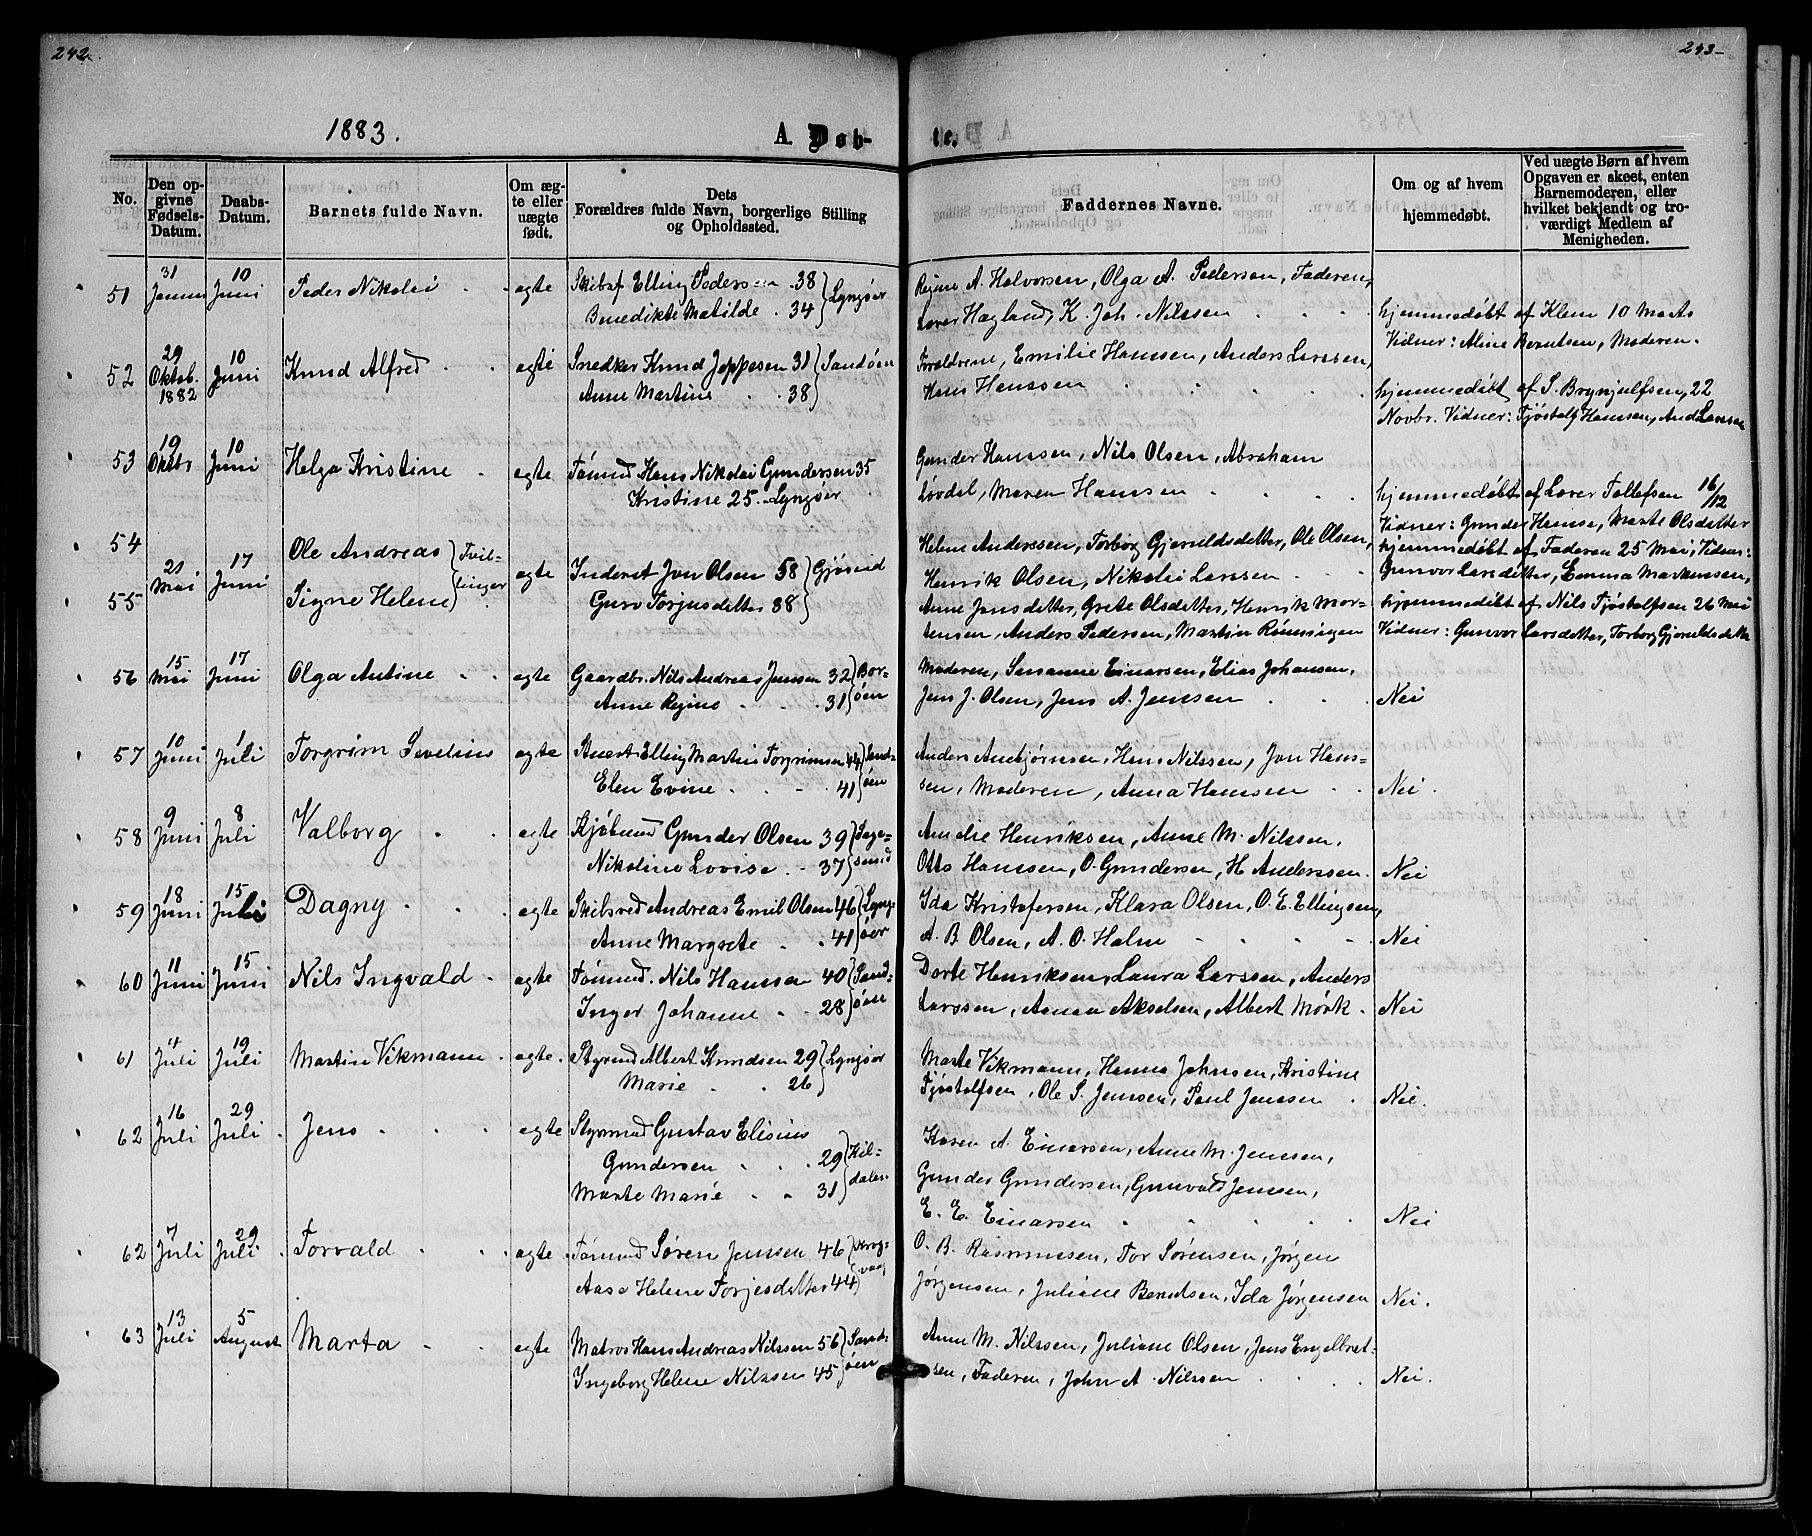 242.
243
1883.
A. Døb-
te.
No.
Den op-
givne
Fødsels-
Datum.
Daabs-
Datum.
Barnets fulde Navn.
Om æg-
te eller
uægte
født.
Dets
Forældres fulde Navn, borgerlige Stilling
og Opholdssted.
Faddernes Navne.
Om og af hvem
hjemmedøbt.
Ved uægte Børn af hvem
Opgaven er skeet, enten
Barnemoderen, eller
hvilket bekjendt og tro-
værdigt Medlem af
Menigheden.
51 31 Januar 10 Juni Peder Nikolai ægte Skibsf Elling Pedersen 38 Lyngøer
Benedikte Matilde 34
A. Halvorsen, Olga A. Pedersen, Faderen,
Laver Hagland, K. Joh. Nilssen
hjemmedøbt af Klem 10 Marts
Vidner: Aline Berntsen, Moderen.
52 29 Oktob. 1882 10 Juni Knud Alfred ægte Snedker Knud Jeppesen 31 Sandøen
Anne Martine 38
Forældrene, Emilie Hanssen, Anders Larssen,
Hans Hanssen
hjemmedøbt af S. Brynjulfsen, 22
Novbr. Vidner: Tjøstolf Hanssen, And Larssen
53 19 Oktbr 10 Juni Helga Kristine ægte Tømmd Hans Nikolai Gundersen 35
Kristine 25. Lyngøer
Gunder Hanssen, Nils Olsen, Abraham
Løvdal, Maren Hanssen
hjemmedøbt af Laver Tollefsen 16/12
Vidner: Gunder Hansen, Marte Olsdatter
54 21 Mai 17 Juni Ole Andreas Tvil-
55 Signe Helene linger
ægte Inderst Jon Olsen 58 Gjøsund
Guro Torjusdatter 38
Helene Anderssen, Torborg Gjeruldsdatter, Ole Olsen,
Henrik Olsen, Nikolai Larssen
Anne Jonsdatter, Grete Olsdatter, Henrik Mor-
tensen, Anders Pedersen, Martin Rønningen
hjemmedøbt af Faderen 25 Mai, Vidner:
Gunvor Larsdatter, Emma Markussen,
hjemmedøbt af Nils Tjøstolfsen 26 Mai
Vidner: Gunvor Larsdatter, Torborg Gjeruldsdatter
56 15 Mai 17 Juni Olga Antine ægte Gaardbr. Nils Andreas Jenssen 32 Bor-
Anne Regine 31 øen
Moderen, Susanne Einarsen, Elias Johansen,
Jens J. Olsen, Jens A. Jenssen
Nei
57 10 Juni 1 Juli Torgrim Sevelius ægte Stuert Elling Martin Torgrimsen 44 Sand-
Elen Evine 41 øen
Anders Anbjørnsen, Hans Nilssen, Jon Hans-
sen, Moderen, Anna Hanssen
Nei.
58 9 Juni 8 Juli Valborg ægte Kjøbmd Gunder Olsen 39
Nikoline Lovise 37
Amalie Henriksen, Anne M. Nilssen,
Otto Hanssen, O. Gundersen, H Anderssen.
Nei
59 18 Juni 15 Juli Dagny ægte Skibsred Andreas Emil Olsen 46 Lyng-
Anne Margrete 41 øer
Ida Kristofersen, Klara Olsen, O. E. Ellingsen,
A. B Olsen, A. O. Holm
Nei
60 11 Juni 15 Juni Nils Ingvald ægte Tømmd. Nils Hanssen 40 Sand-
Inger Johanne 28 øen
Dorte Henriksen, Laura Larssen, Anders
Larssen, Anna Akselsen, Albert Mørk.
Nei
61 4 Juli 19 Juli Martin Vikmann ægte. Styrmd Albert Knudsen 29 Lyngøer
Marie 26
Marte Vikmann, Hanna Johnsen, Kristine
Tjøstolfsen, Ole S. Jenssen, Paul Jenssen
Nei.
62 16 Juli 29 Juli Jens ægte Styrmd Gustav Elisius
Gundersen 29 Kil-
Marte Marie 31 dalen
Karen A. Einarsen, Anne M. Jenssen,
Gunder Gundersen, Gunvald Jenssen,
E. E. Einarsen
Nei
62 7 Juli 29 Juli Torvald ægte Tømmd Søren Jenssen 46 Krog-
Aase Helene Torjesdatter 44 vaag
O. B. Rasmussen, Tor Sørensen, Jørgen
Jørgensen, Juliane Berntsen, Ida Jørgensen
Nei.
63 13 Juli 5 August Marta ægte Matros Hans Andreas Nilssen 56 Sand-
Ingeborg Helene Nilssen 45 øen
Anne M. Nilssen, Juliane Olsen, Jens Engelbret-
sen, Faderen, John A. Nilssen
Nei.